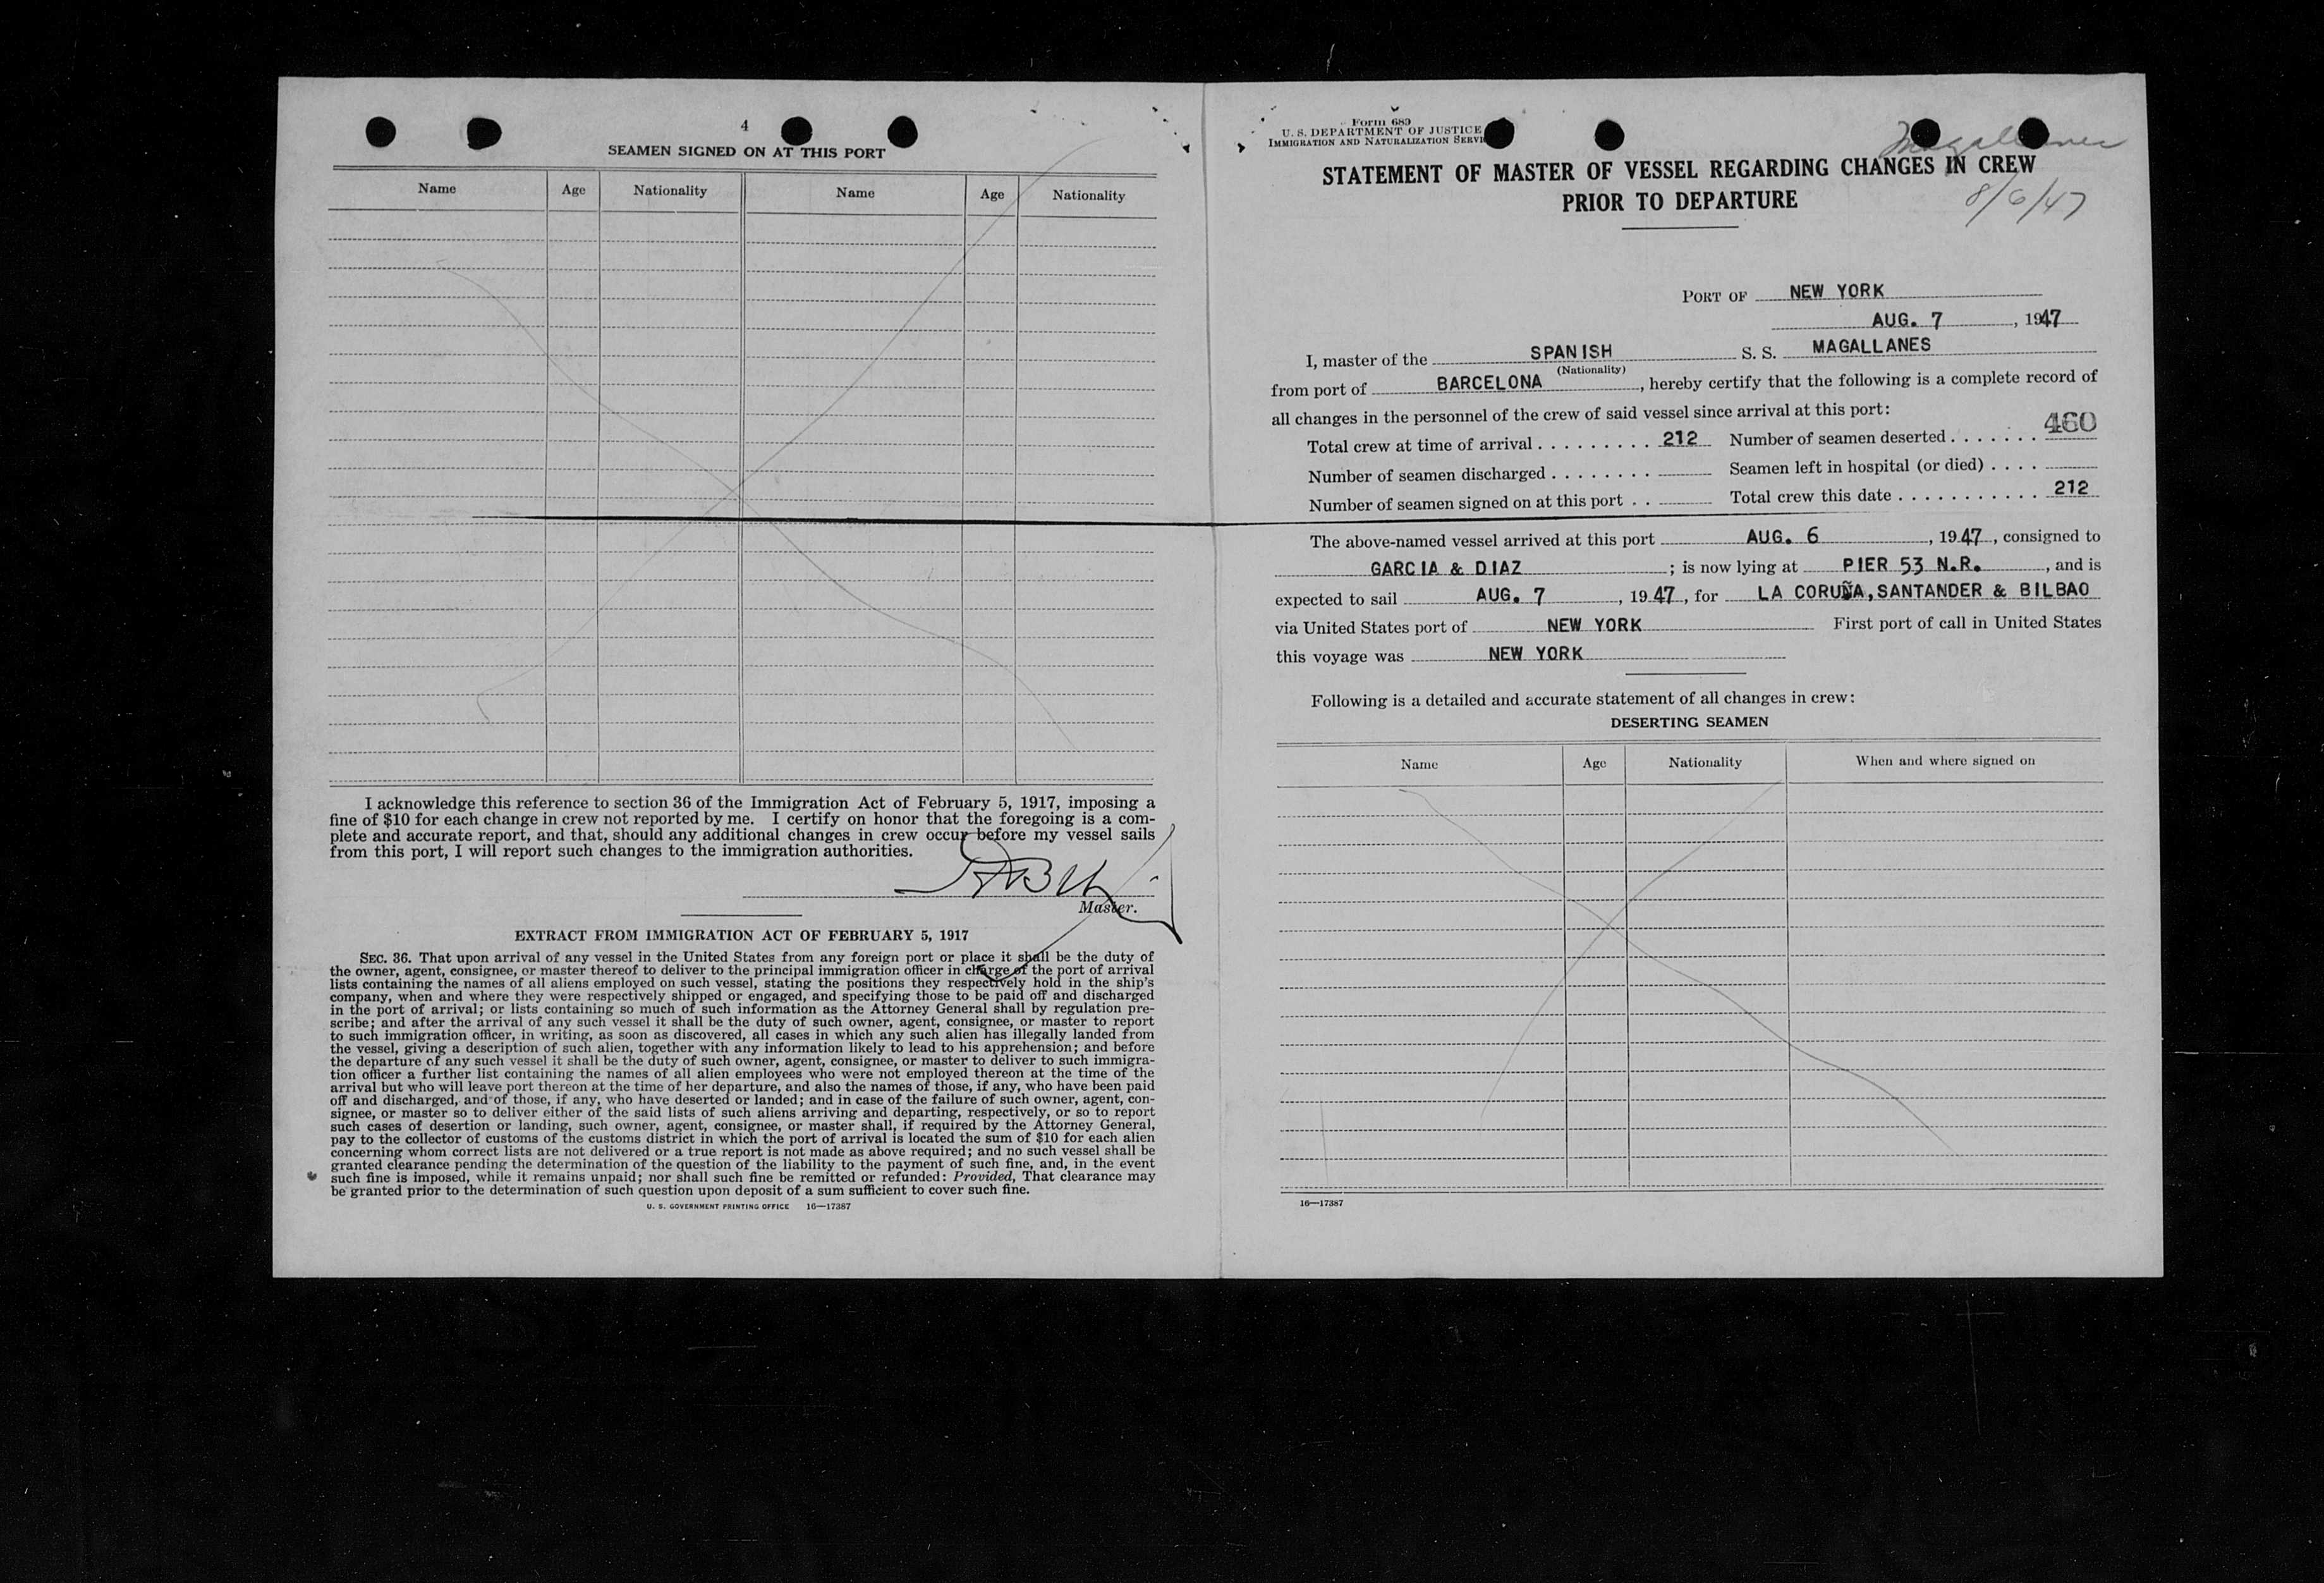 4
SEAMEN SIGNED ON AT THIS PORT
Name Age Nationality Name Age Nationality
I acknowledge this reference to section 36 of the Immigration Act of February 5, 1917, imposing a
fine of $10 for each change in crew not reported by me. I certify on honor that the foregoing is a com-
plete and accurate report, and that, should any additional changes in crew occur before my vessel sails
from this port, I will report such changes to the immigration authorities.
Master.
EXTRACT FROM IMMIGRATION ACT OF FEBRUARY 5, 1917
SEC. 36. That upon arrival of any vessel in the United States from any foreign port or place it shall be the duty of
the owner, agent, consignee, or master thereof to deliver to the principal immigration officer in charge of the port of arrival
lists containing the names of all aliens employed on such vessel, stating the positions they respectively hold in the ship's
company, when and where they were respectively shipped or engaged, and specifying those to be paid off and discharged
in the port of arrival; or lists containing so much of such information as the Attorney General shall by regulation pre-
scribe; and after the arrival of any such vessel it shall be the duty of such owner, agent, consignee, or master to report
to such immigration officer, in writing, as soon as discovered, all cases in which any such alien has illegally landed from
the vessel, giving a description of such alien, together with any information likely to lead to his apprehension; and before
the departure of any such vessel it shall be the duty of such owner, agent, consignee, or master to deliver to such immigra-
tion officer a further list containing the names of all alien employees who were not employed thereon at the time of the
arrival but who will leave port thereon at the time of her departure, and also the names of those, if any, who have been paid
off and discharged, and of those, if any, who have deserted or landed; and in case of the failure of such owner, agent, con-
signee, or master so to deliver either of the said lists of such aliens arriving and departing, respectively, or so to report
such cases of desertion or landing, such owner, agent, consignee, or master shall, if required by the Attorney General,
pay to the collector of customs of the customs district in which the port of arrival is located the sum of $10 for each alien
concerning whom correct lists are not delivered or a true report is not made as above required; and no such vessel shall be
granted clearance pending the determination of the question of the liability to the payment of such fine, and, in the event
such fine is imposed, while it remains unpaid; nor shall such fine be remitted or refunded: Provided, That clearance may
be granted prior to the determination of such question upon deposit of a sum sufficient to cover such fine.
U. S. GOVERNMENT PRINTING OFFICE 16—17387
Form 689
U. S. DEPARTMENT OF JUSTICE
IMMIGRATION AND NATURALIZATION SERVI
Magallanes
STATEMENT OF MASTER OF VESSEL REGARDING CHANGES IN CREW
PRIOR TO DEPARTURE
8/6/47
PORT OF NEW YORK
AUG. 7, 1947
I, master of the SPANISH S. S. MAGALLANES
(Nationality)
from port of BARCELONA, hereby certify that the following is a complete record of
all changes in the personnel of the crew of said vessel since arrival at this port:
Total crew at time of arrival . . . . . . . . . 212 Number of seamen deserted . . . . . . . 460
Number of seamen discharged . . . . . . . . Seamen left in hospital (or died) . . . .
Number of seamen signed on at this port . . Total crew this date . . . . . . . . . . . 212
The above-named vessel arrived at this port AUG. 6, 1947, consigned to
GARCIA & DIAZ; is now lying at PIER 53 N.R., and is
expected to sail AUG. 7, 1947, for LA CORUÑA, SANTANDER & BILBAO
via United States port of NEW YORK First port of call in United States
this voyage was NEW YORK
Following is a detailed and accurate statement of all changes in crew:
DESERTING SEAMEN
Name Age Nationality When and where signed on
16—17387